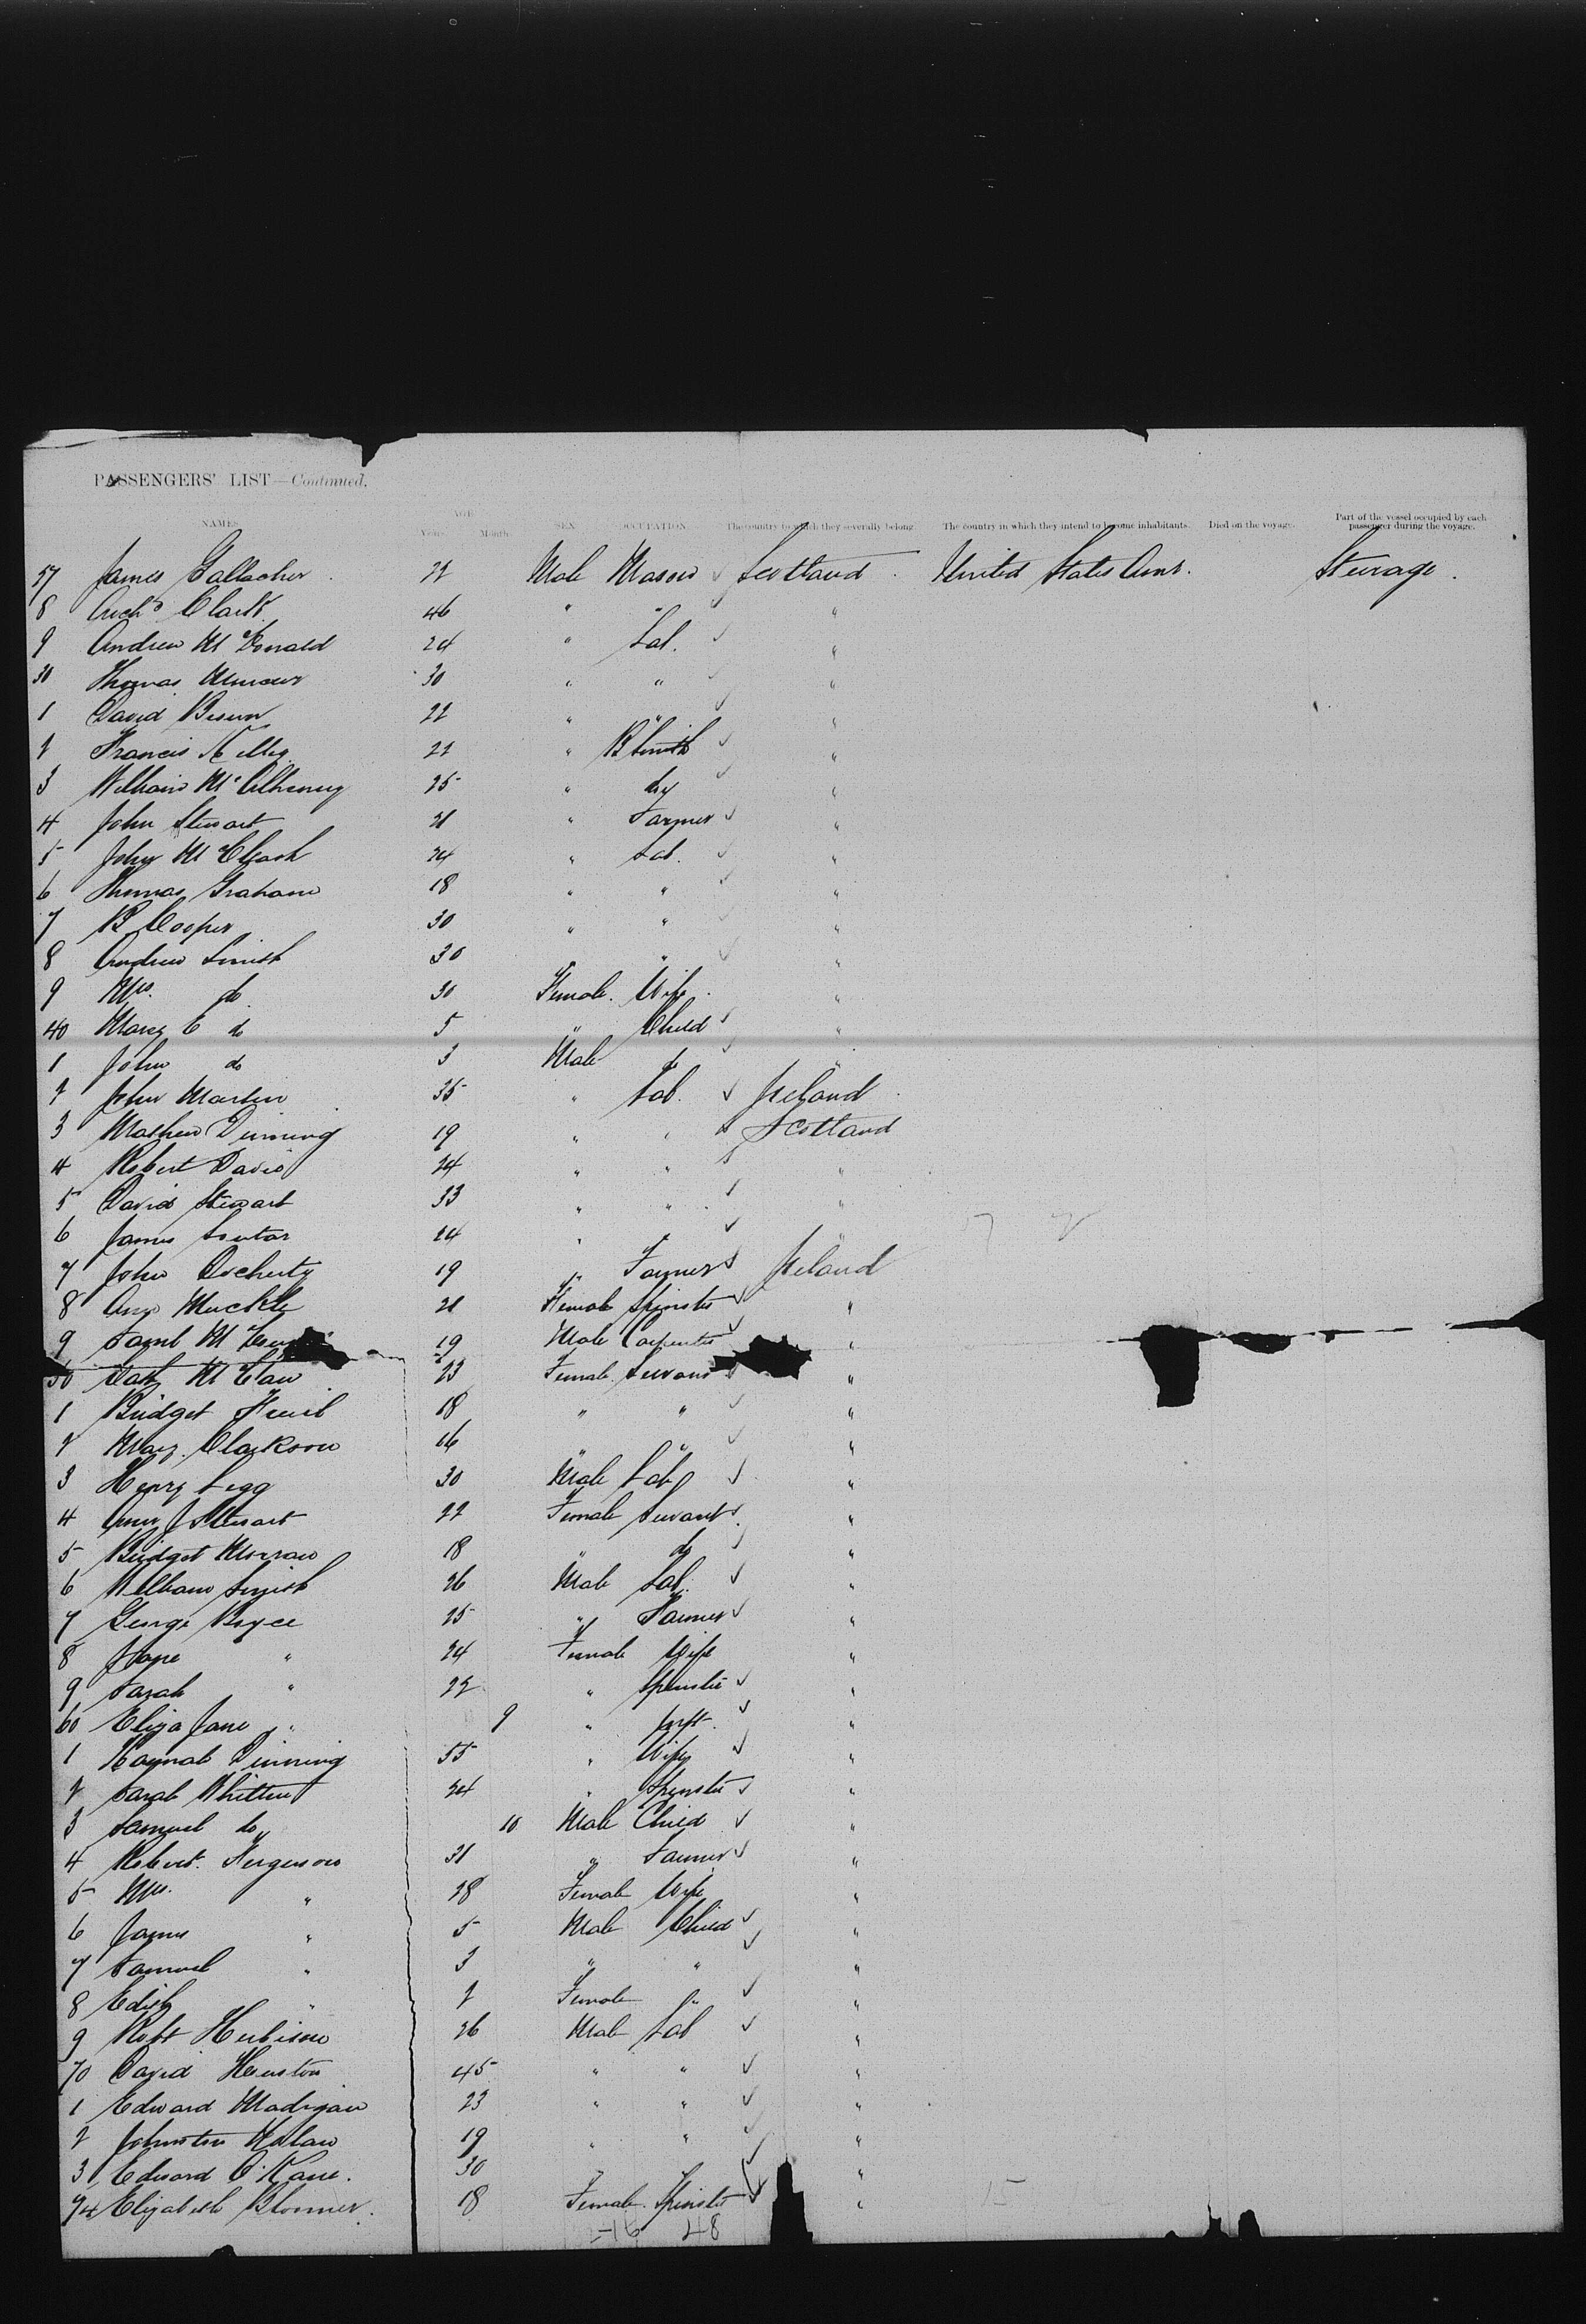 PASSENGERS' LIST—Continued.
NAMES AGE Years Month SEX OCCUPATION The country to which they severally belong. The country in which they intend to become inhabitants. Died on the voyage. Part of the vessel occupied by each passenger during the voyage.
James Gallagher 22 Male Mason Scotland United States Amr. Steerage.
8 Archd Clark 46 " " "
9 Andrew McDonald 24 " Lab. "
30 Thomas 30 " " "
1 David Brown 22 " " "
2 Francis Kelly 22 " B Smith "
3 William McAlheney 25 " do "
4 John Stewart 21 " Farmer "
5 John McCleash 24 " Lab. "
6 Thomas Graham 18 " " "
7 B Cooper 30 " " "
8 Andrew Smith 30 " " "
9 Mrs. do 30 Female Wife "
40 Mary E do 5 " Child "
1 John do 3 Male do "
2 John Martin 35 " Lab. Ireland
3 Mathew Dinning 19 " " Scotland
4 Robert Davis 24 " " "
5 David Stewart 33 " " "
6 James Soutar 24 " " "
7 John Docherty 19 " Farmer Ireland
8 Ann Muckle 21 Female Spinster "
9 Saml 19 Male Carpenter "
50 23 Female Servant "
1 Bridget 18 " " "
2 Mary Clarkson 16 " " "
3 Henry Legg 30 Male Lab "
4 Ann J Stewart 22 Female Servant "
5 Bridget Morrow 18 " do "
6 William Smith 26 Male Lab. "
7 George Boyce 25 " Farmer "
8 Jane " 24 Female Wife "
9 Sarah " 22 " Spinster "
60 Eliza Jane " 9 " Inft. "
1 Hannah Dinning 55 " Wife "
2 Sarah Whitten 24 " Spinster "
3 Samuel do 10 Male Child "
4 Robert Ferguson 31 " Farmer "
5 Mrs. " 28 Female Wife "
6 James " 5 Male Child "
7 Samuel " 3 " " "
8 Edith " 2 Female " "
9 Robt Herbison 26 Male Lab "
70 David Heuston 45 " " "
1 Edward Madigan 23 " " "
2 Johnston 19 " " "
3 Edward O'Kane. 30 " " "
74 Elizabeth Bloomer. 18 Female Spinster "
16 48